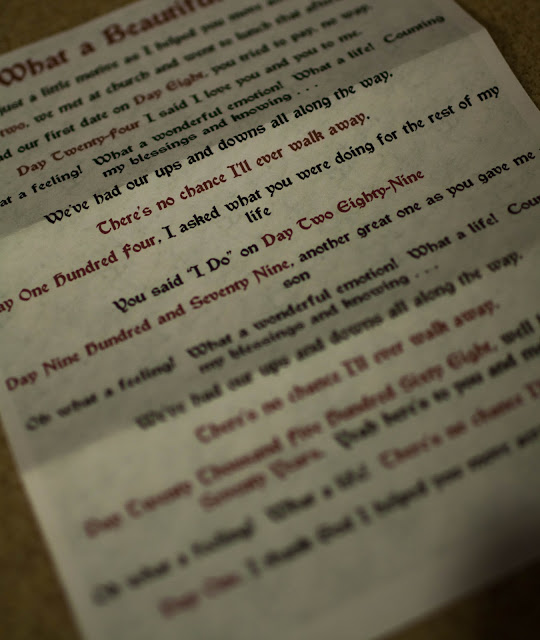 What a Beautiful
just a little motive as I helped you move
two, we met at church and went to lunch that
our first date on Day Eight, you tried to pay, no way.
Day Twenty-four I said I love you and you to me.
at a feeling! What a wonderful emotion! What a life! Counting
my blessings and knowing . . .
We've had our ups and downs all along the way.
There's no chance I'll ever walk away.
Day One Hundred Four, I asked what you were doing for the rest of my
life
You said "I Do" on Day Two Eighty-Nine
Day Nine Hundred and Seventy Nine, another great one as you gave me
son
Oh what a feeling! What a wonderful emotion! What a life!
my blessings and knowing . . .
We've had our ups and downs all along the way.
There's no chance I'll ever walk away.
Day Twenty Thousand Five Hundred Sixty Eight, well
Seventy Years. Yeah here's to you and
Oh what a feeling! What a life! There's no chance
Day One, I thank God I helped you move